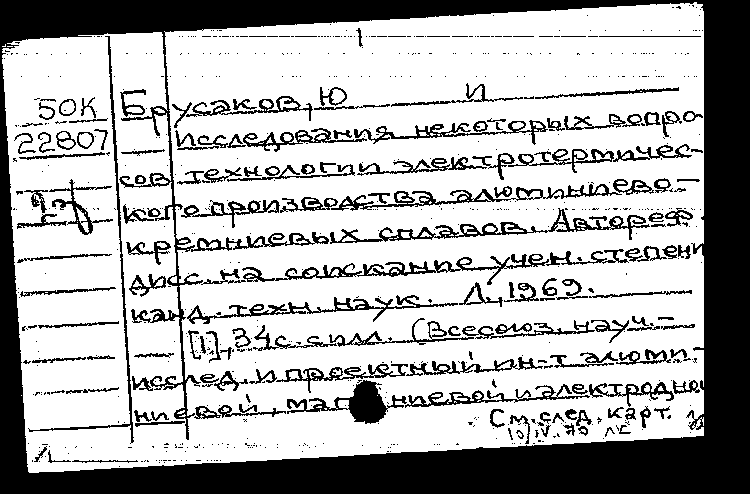 50К Брусаков, Ю И
22807 Исследования некоторых вопро-
сов технологии электротермичес-
кого производства алюминиево-
кремниевых сплавов. Автореф.
дисс. на соискание учен. степени
канд. техн. наук. Л., 1969.
[1], 34с. с илл. (Всесоюз. науч.-
исслед. и проектный ин-т алюми-
ниевой, маг ниевой и электродной
См. след. карт.